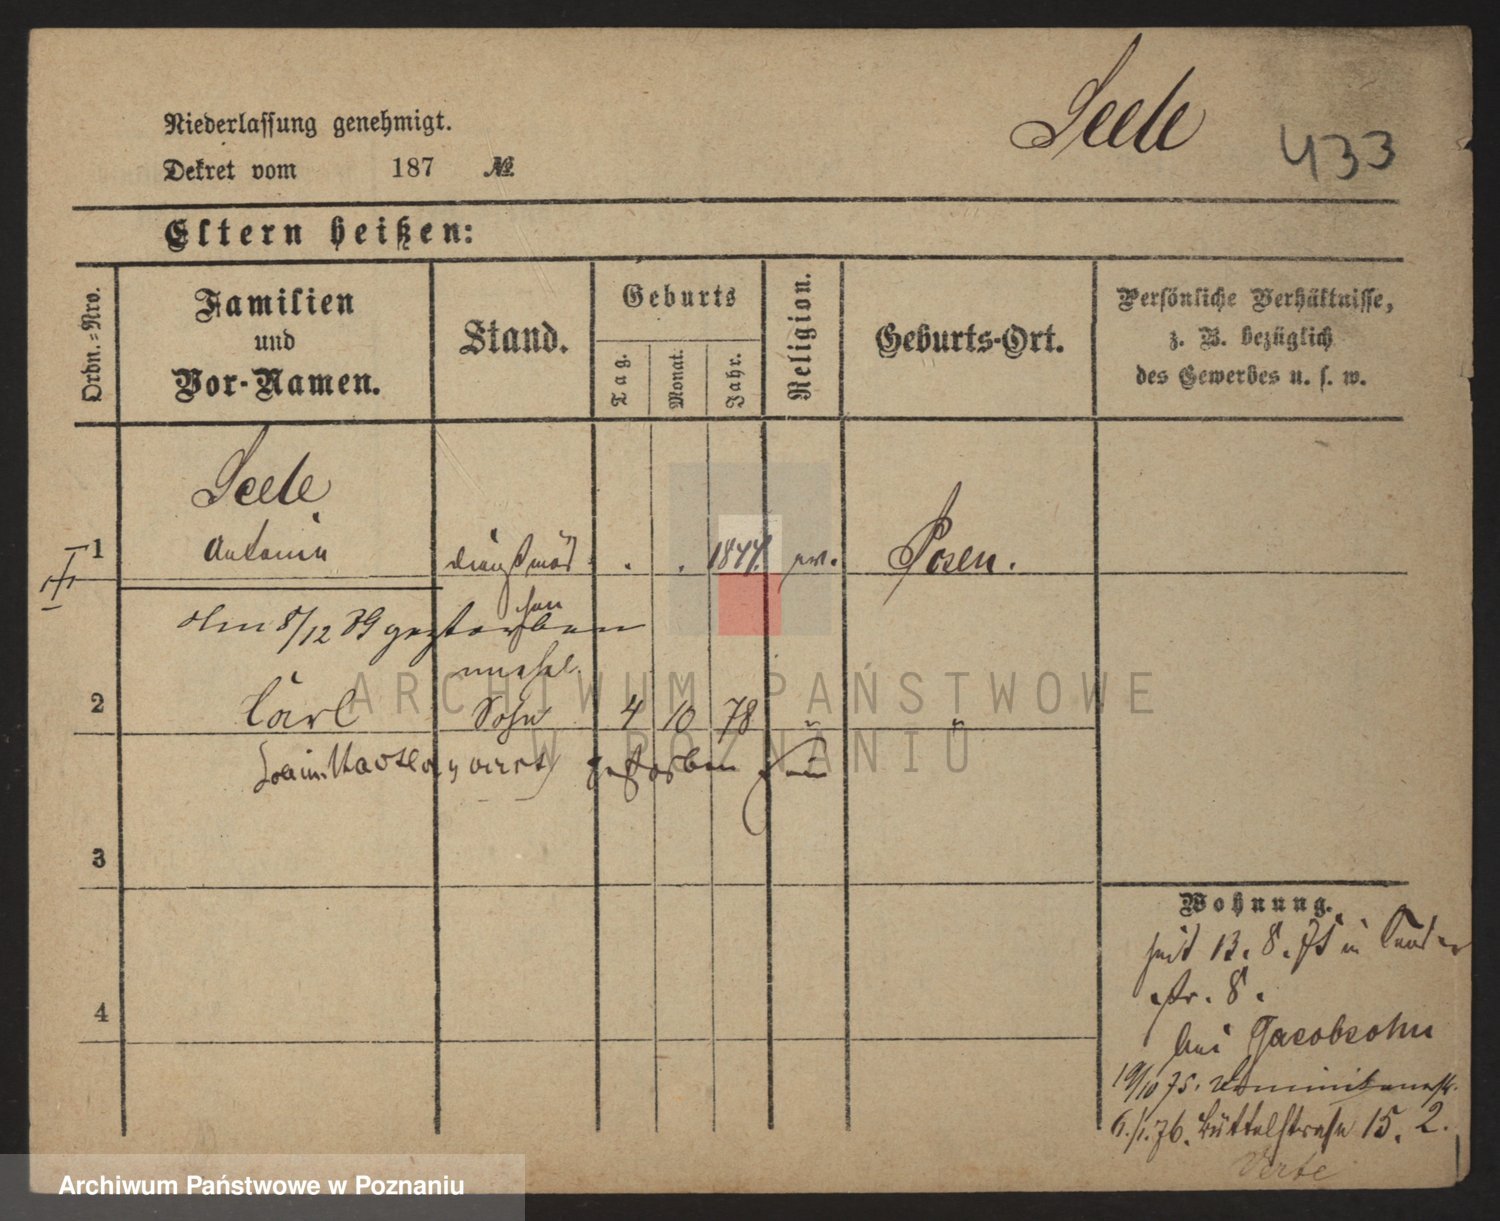 Seele
433
Niederlassung genehmigt.
Dekret vom 187 №
Eltern heißen:
Ordn.-Nro.
Familien
und
Vor-Namen.
Stand.
Geburts
Tag.
Monat.
Jahr.
Religion.
Geburts-Ort.
Persönliche Verhältnisse,
z. B. bezüglich
des Gewerbes u. s. w.
Seele
1 Antonin 1844. ev. Posen.
8/12 gestorben
unehel.
2 Carl Sohn 4 10 78
gestorben sein
3
4
Wohnung.
seit 13. 8. 75 in
str. 8.
bei Jacobsohn
19/10 75. Dominikanerstr.
6./1. 76. Büttelstraße 15. 2.
ARCHIWUM PAŃSTWOWE
W POZNANIU
Archiwum Państwowe w Poznaniu